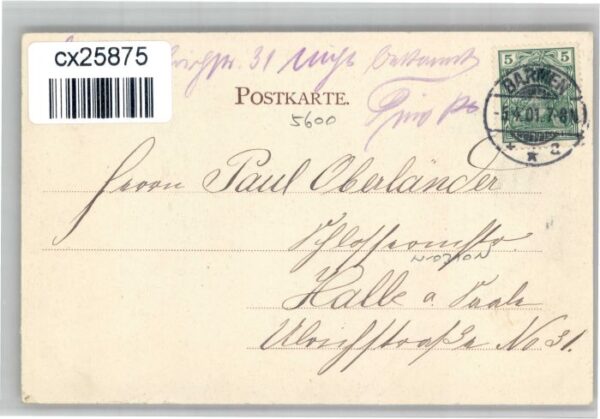 cx25875
31 nicht bekannt
POSTKARTE.
5600
5
5
BARMEN
-5.4.01.7-8N.
* a
Herrn Paul Oberländer
Schlossermstr.
Halle a. Saale
Ulrichstraße No 31.